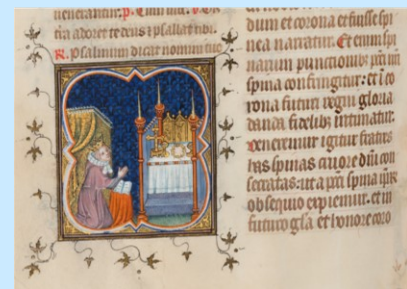 uenerantur.
nia adoret te deus et psallat tibi.
R. psalmum dicat nomini tuo
dum et corona et fuisse spi
nea narratur. Et enim spi
narum punctionibus
spina confringitur: et i co
rona futuri regni gloria
danda fidelib intimatur.
Veneremur igitur fratres
has spinas cruore dni con
secratas: ut a pcti spina
obsequio expiemur. et in
futuro gla et honore coro